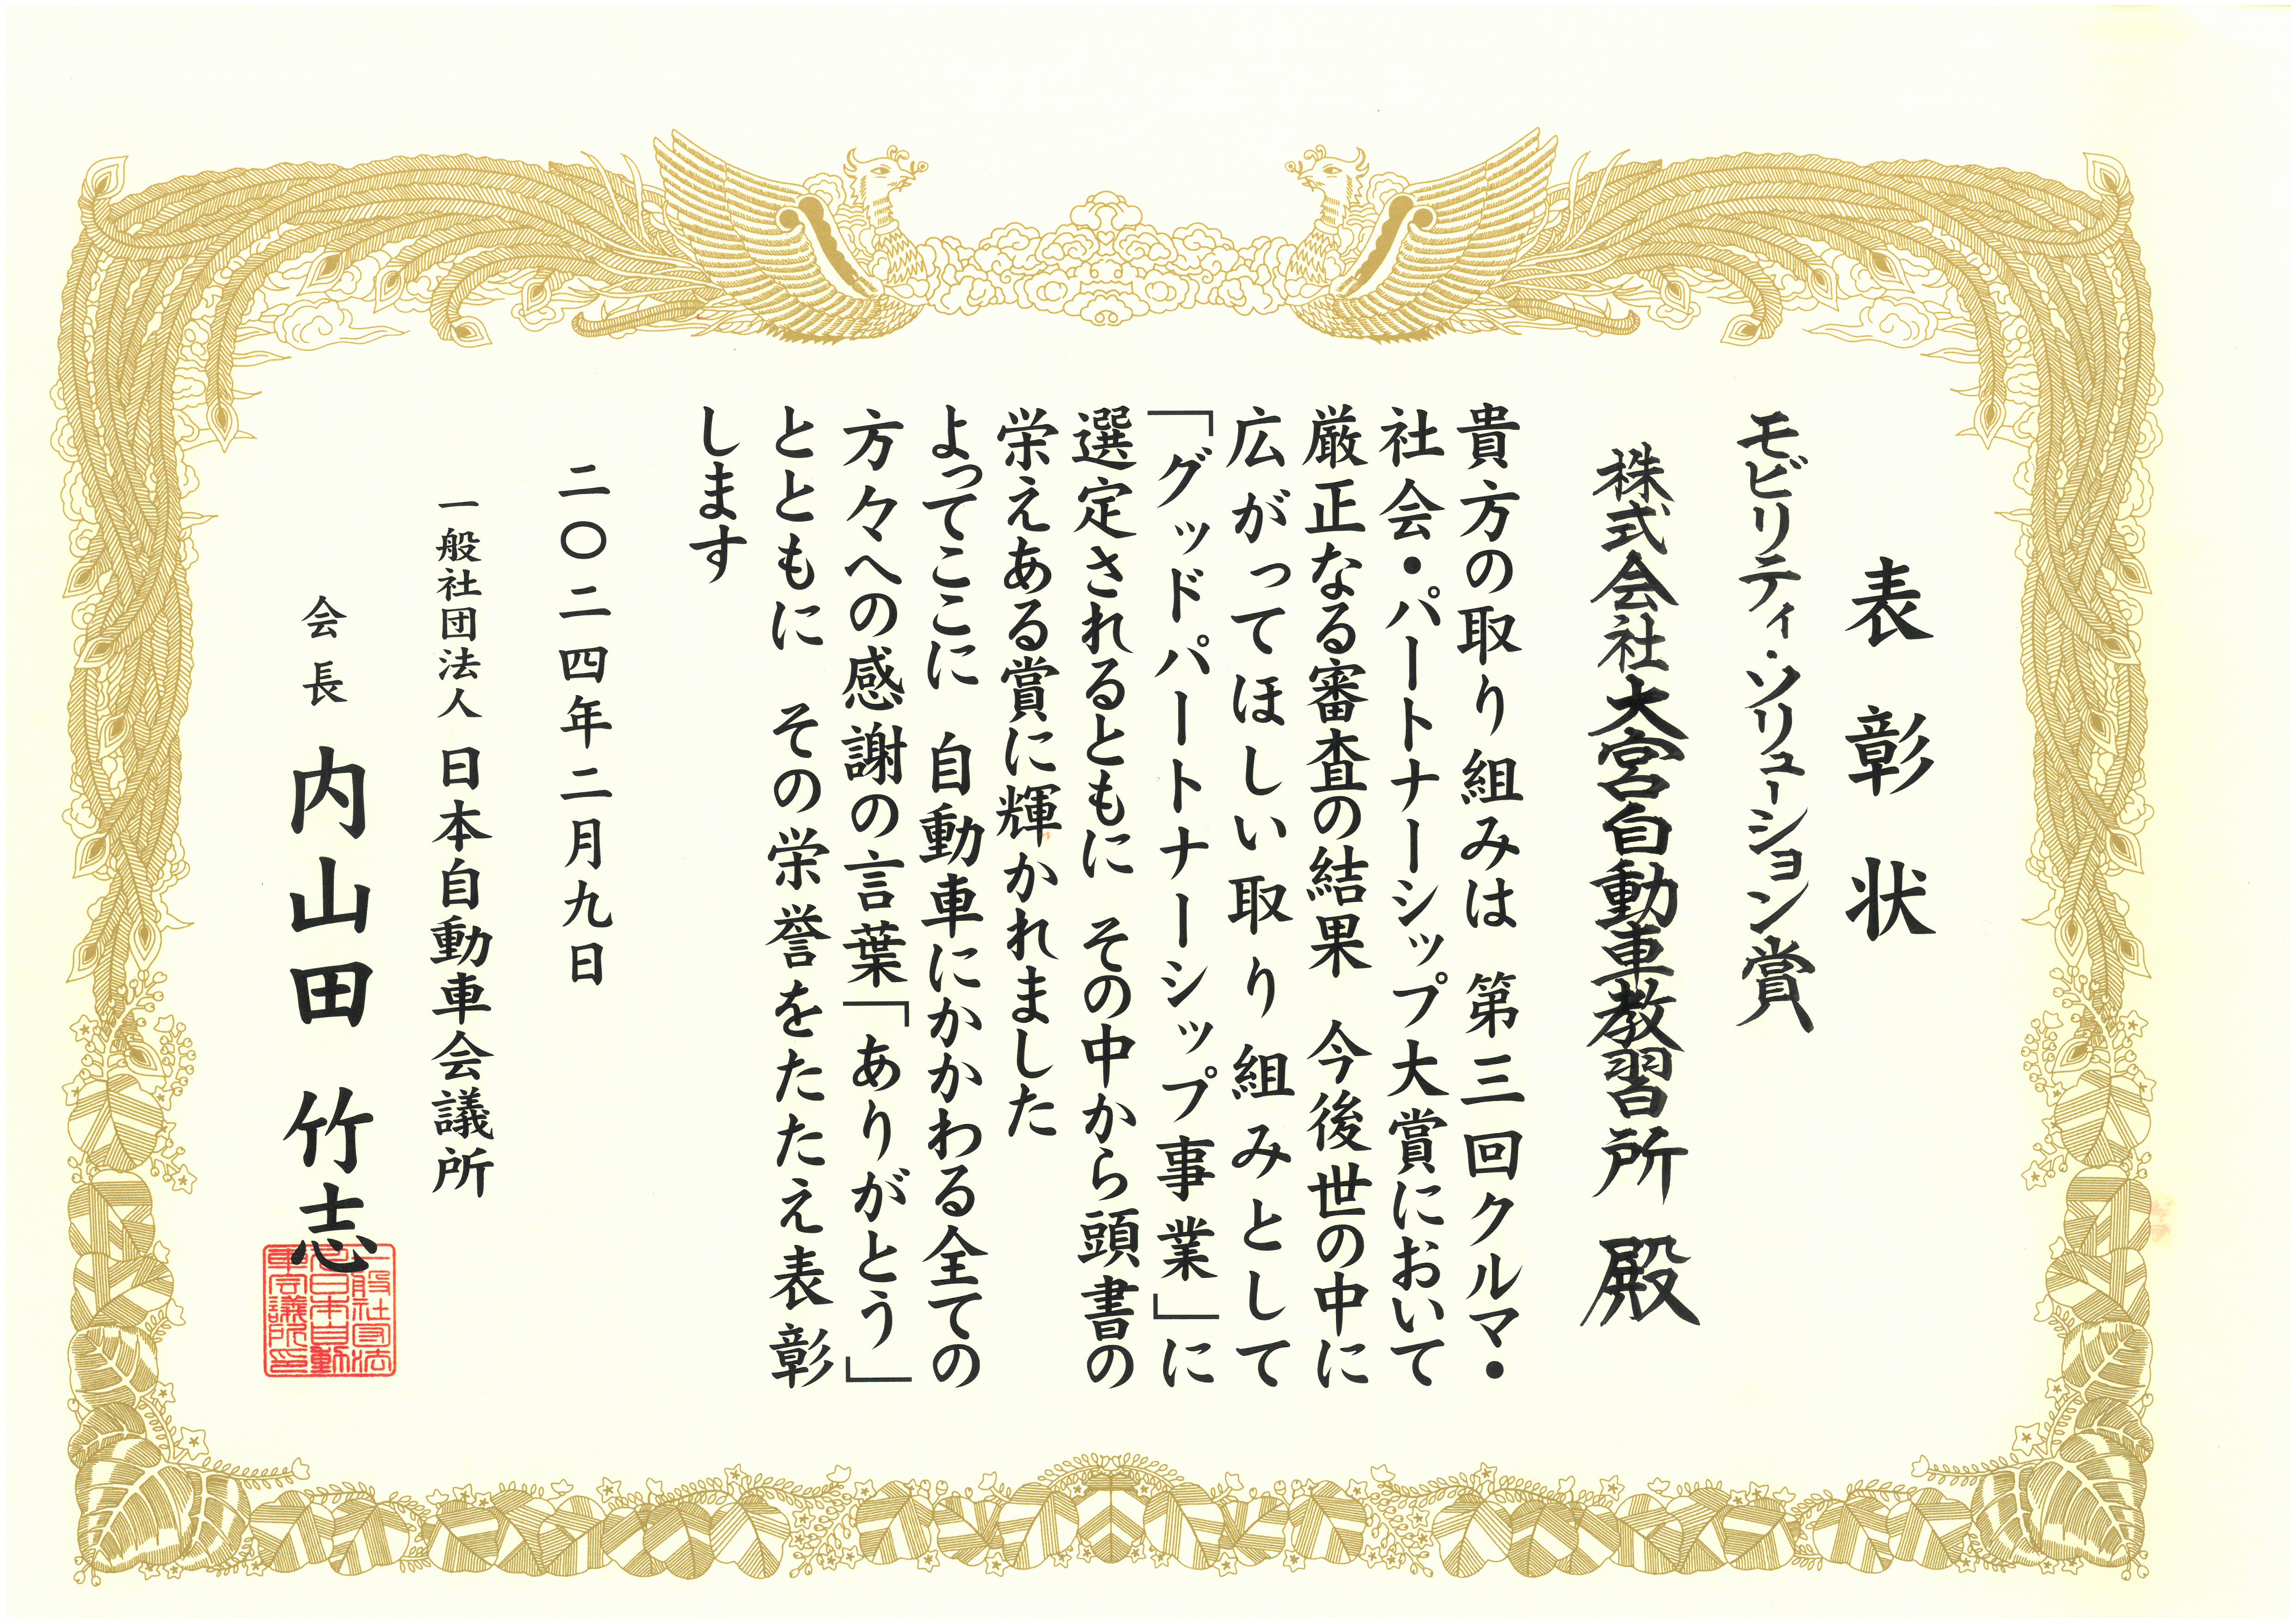 表彰状
モビリティ・ソリューション賞
株式会社大宮自動車教習所 殿
貴方の取り組みは 第三回クルマ・
社会・パートナーシップ大賞において
厳正なる審査の結果 今後世の中に
広がってほしい取り組みとして
「グッドパートナーシップ事業」に
選定されるとともに その中から頭書の
栄えある賞に輝かれました
よってここに 自動車にかかわる全ての
方々への感謝の言葉「ありがとう」
とともに その栄誉をたたえ表彰
します
二〇二四年二月九日
一般社団法人 日本自動車会議所
会長 内山田 竹志
一般社団法
人日本自動
車会議所印